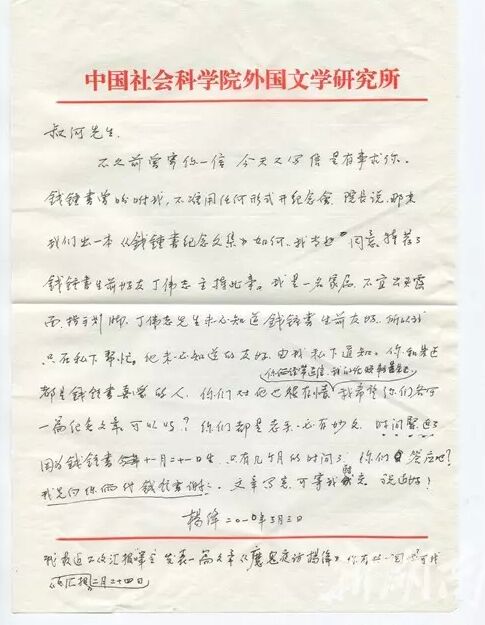 中国社会科学院外国文学研究所
叔河先生,
不久前曾寄你一信 今天又写信是有事求你。
錢鍾書曾吩咐我,不准用任何形式开纪念会 院长说,那末
我们出一本《錢鍾書纪念文集》如何,我当也同意,推荐了
錢鍾書生前好友丁伟志主持此事。我是一名家属,不宜出头露
面指手划脚,丁伟志先生未必知道錢鍾書生前友好,所以我
只在私下帮忙。他未必知道的友好,由我私下通知。你和朱正
都是錢鍾書喜爱的人,你们对他也很有情 我希望你们各司
一篇纪念文章 可以吗?你们都是老手,必有妙文,时间紧迫了
因为錢鍾書 十一月二十一日生,只有几个月的时间了,你们 答应吧?
我先向你俩代錢鍾書谢谢。文章写完,可寄我 說迫好!
楊絳 二〇一〇年3月3日
我最近 文汇报 发表一篇文章《魔鬼夜访楊絳》你有 可找
文汇报 二月二十四日